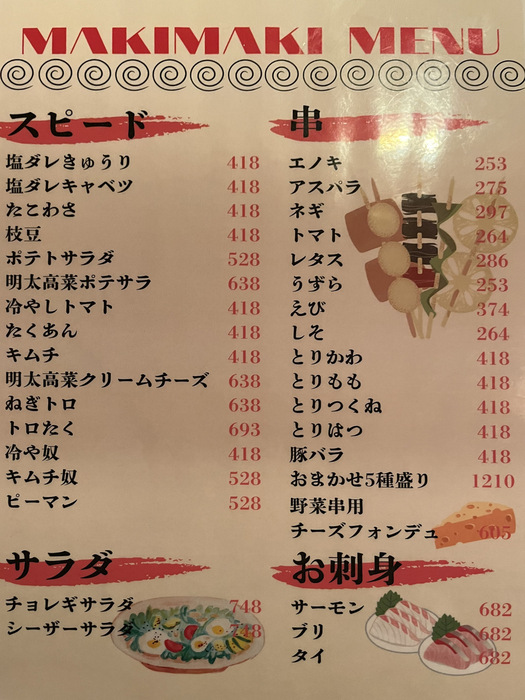 MAKIMAKI MENU
スピード
塩ダレきゅうり 418
塩ダレキャベツ 418
たこわさ 418
枝豆 418
ポテトサラダ 528
明太高菜ポテサラ 638
冷やしトマト 418
たくあん 418
キムチ 418
明太高菜クリームチーズ 638
ねぎトロ 638
トロたく 693
冷や奴 418
キムチ奴 528
ピーマン 528
サラダ
チョレギサラダ 748
シーザーサラダ 748
串
エノキ 253
アスパラ 275
ネギ 297
トマト 264
レタス 286
うずら 253
えび 374
しそ 264
とりかわ 418
とりもも 418
とりつくね 418
とりはつ 418
豚バラ 418
おまかせ5種盛り 1210
野菜串用
チーズフォンデュ 605
お刺身
サーモン 682
ブリ 682
タイ 682